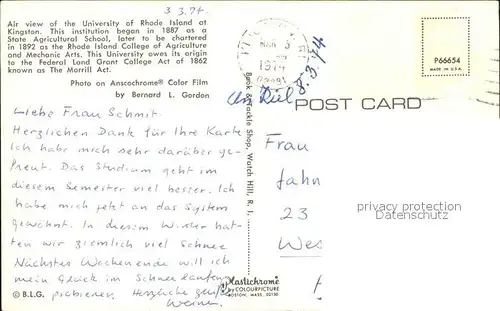 3.3.74.
Air view of the University of Rhode Island at
Kingston. This institution began in 1887 as a
State Agricultural School, later to be chartered
in 1892 as the Rhode Island College of Agriculture
and Mechanic Arts. This University owes its origin
to the Federal Land Grant College Act of 1862
known as The Morrill Act.
Photo on Anscochrome® Color Film
by Bernard L. Gordon
Liebe Frau Schmit.
Herzlichen Dank für Ihre Karte
Ich habe mich sehr darüber ge-
freut. Das Studium geht im
diesem Semester viel besser. Ich
habe mich jetzt an das System
gewöhnt. In diesem Winter hat-
ten wir ziemlich viel Schnee
Nächstes Wochenende will ich
mein Glück im Schneelaufen
probieren. Herzliche Grüße
© B.L.G.
Book & Tackle Shop, Watch Hill, R. I.
Plastichrome®
by COLOURPICTURE
BOSTON, MASS. 02130
P66654
MADE IN U.S.A.
8.3.74
POST CARD
Frau
Jahn
23
privacy protection
Datenschutz